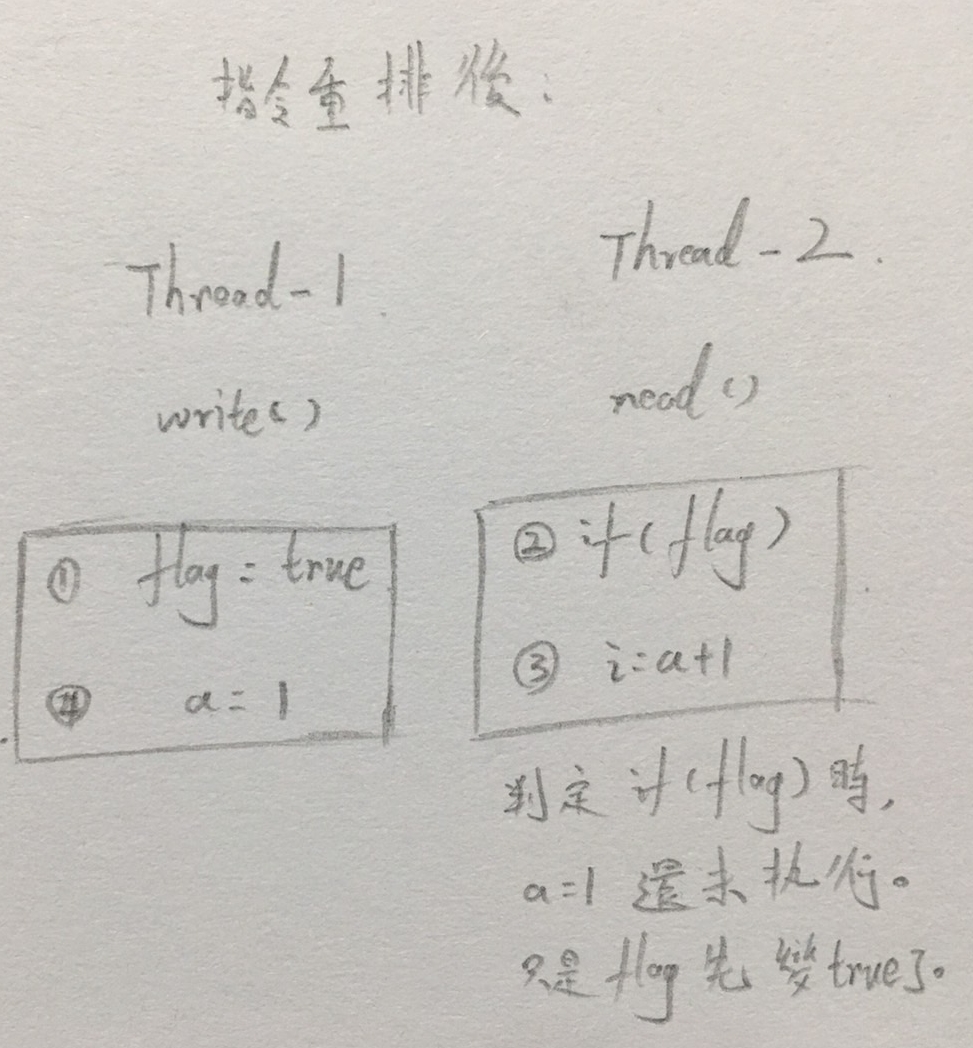 指令重排後：
Thread-1
write()
① flag = true
④ a = 1
Thread-2.
read()
② if(flag)
③ i=a+1
判定 if(flag)時,
a=1 還未執行。
只是 flag 先變true了。